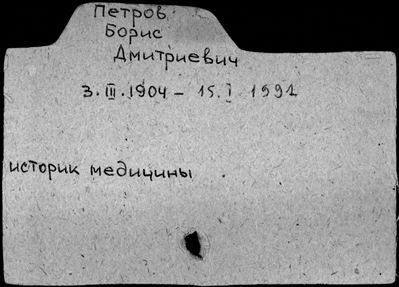 Петров
Борис
Дмитриевич
3.III.1904 – 15.I.1991
историк медицины